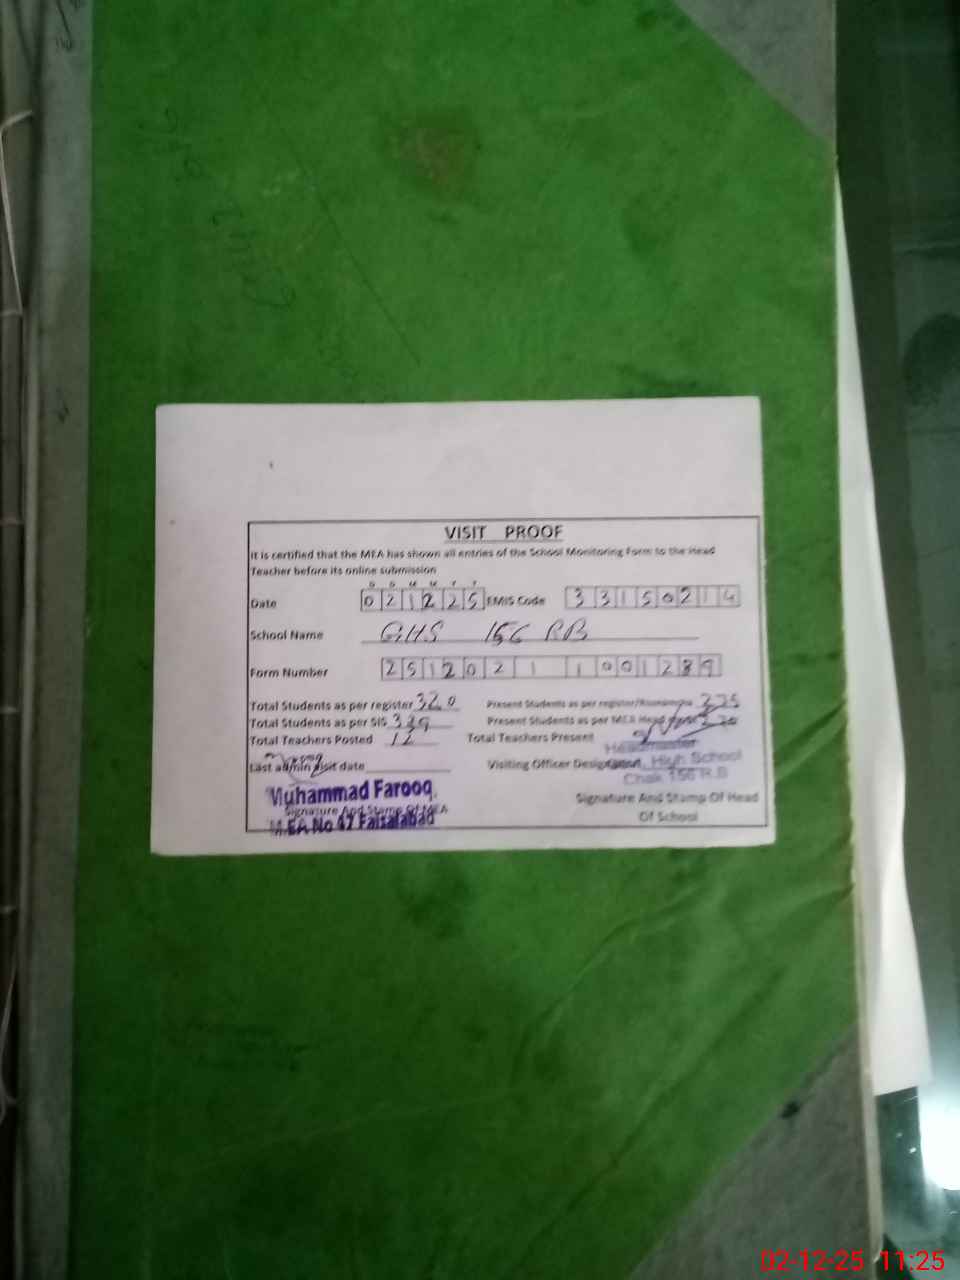 VISIT PROOF
It is certified that the MEA has shown all entries of the School Monitoring Form to the Head
Teacher before its online submission
D D M M Y Y
Date 021225 EMIS Code 33150214
School Name GHS 156 RB
Form Number 251202111001289
Total Students as per register 320 Present Students as per register
Total Students as per SIS Present Students as per MEA Head
Total Teachers Posted 12 Total Teachers Present
Headmaster
Last admin visit date Visiting Officer Designation
Govt. High School
Chak 156 R.B
Muhammad Farooq
Signature And Stamp Of MEA Signature And Stamp Of Head
MEA No 47 Faisalabad Of School
02-12-25 11:25